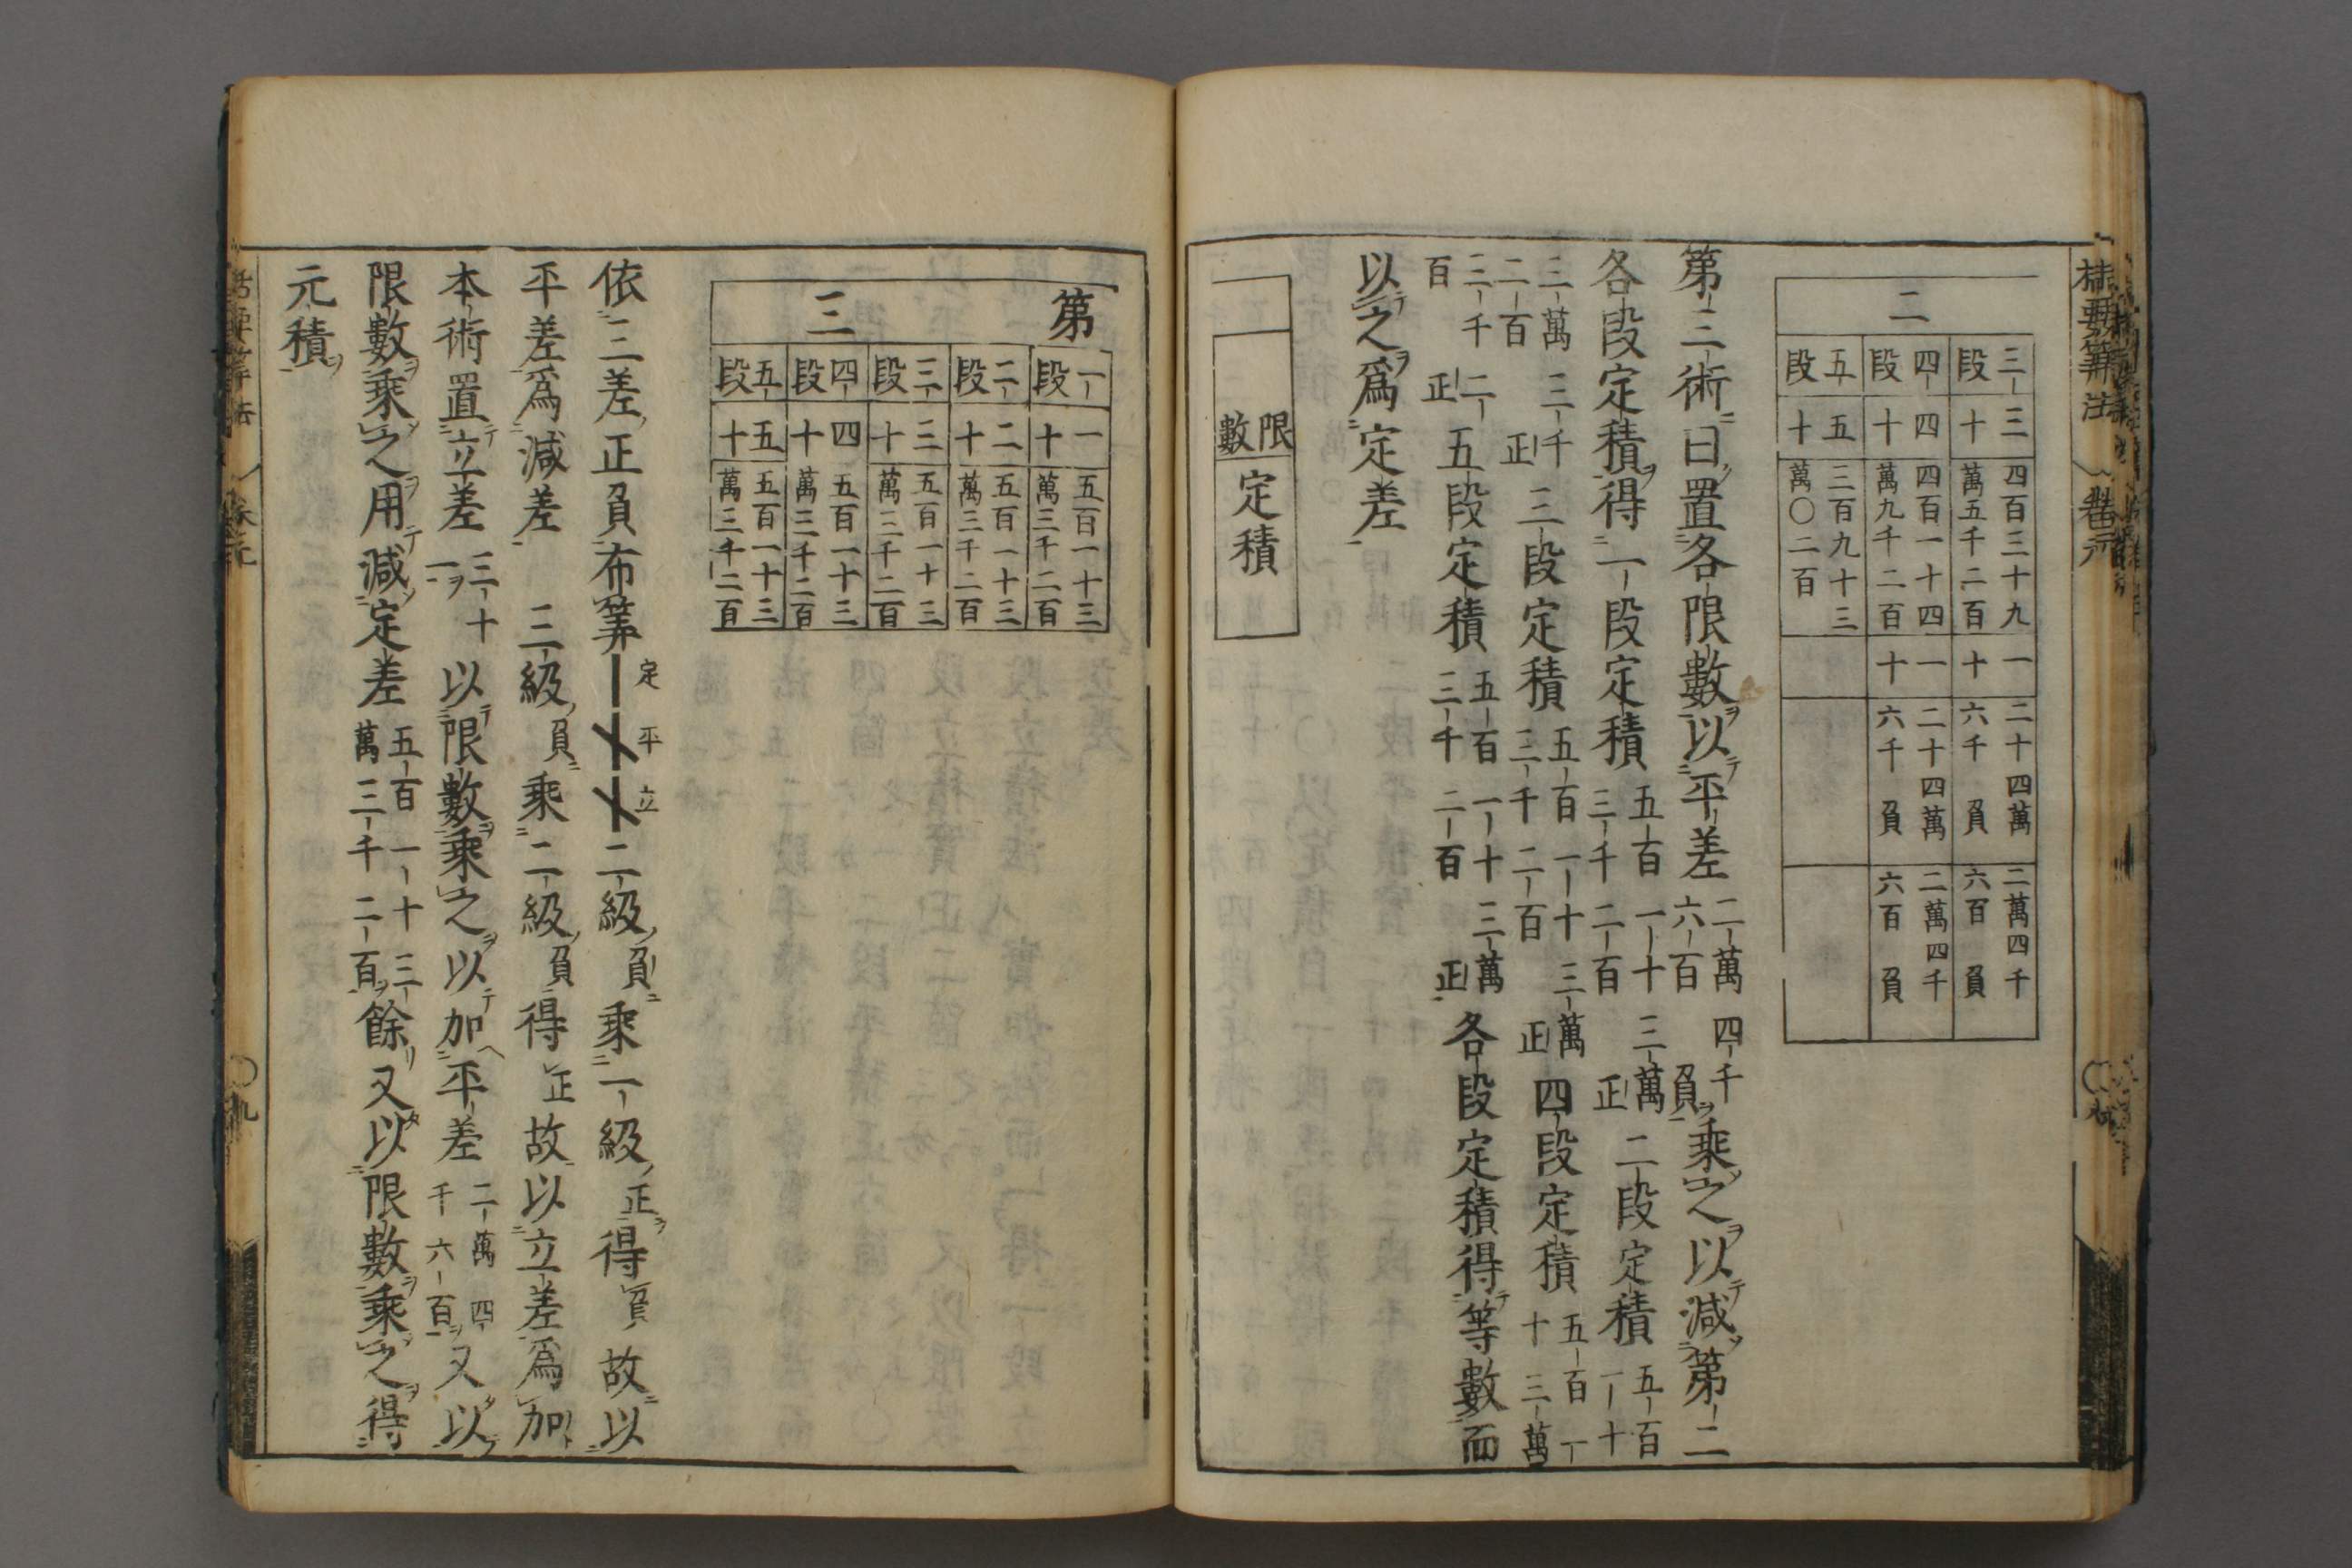 括要算法 卷元
二
三段 三十 四百三十九萬五千二百 一十 二十四萬六千負 二萬四千六百負
四段 四十 四百一十四萬九千二百 一十 二十四萬六千負 二萬四千六百負
五段 五十 三百九十三萬〇二百
第三術曰置各限數以平差二萬四千六百負乘之以減第二
各段定積得一段定積五百一十三萬三千二百正二段定積五百一十
三萬三千二百正三段定積五百一十三萬三千二百正四段定積五百一十三萬
三千二百正五段定積五百一十三萬三千二百正各段定積得等數而
以之爲定差
限數 定積
第三
一段 一十 五百一十三萬三千二百
二段 二十 五百一十三萬三千二百
三段 三十 五百一十三萬三千二百
四段 四十 五百一十三萬三千二百
五段 五十 五百一十三萬三千二百
依三差正負布筭定平立二級負乘一級正得負故以
平差爲減差 三級負乘二級負得正故以立差爲加
本術置立差三十一以限數乘之以加平差二萬四千六百又以
限數乘之用減定差五百一十三萬三千二百餘又以限數乘之得
元積